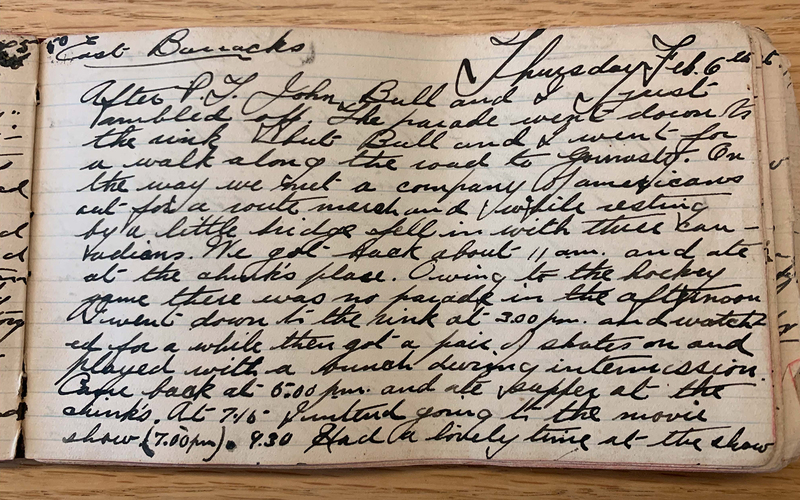 East Barracks
Thursday Feb. 6th
After P.T. John Bull and I just
ambled off. The parade went down to
the rink but Bull and I went for
a walk along the road to. On
the way we met a company of americans
out for a route march and while resting
by a little bridge fell in with three can-
adians. We got back about 11 am. and ate
at the chinks place. Owing to the hockey
game there was no parade in the afternoon
I went down to the rink at 3.00 pm. and watch-
ed for a while then got a pair of skates on and
played with a bunch during intermission.
Came back at 5.00 pm. and ate supper at the
chinks. At 7.15 I intend going to the movie
show (7.00pm). 9.30 Had a lovely time at the show